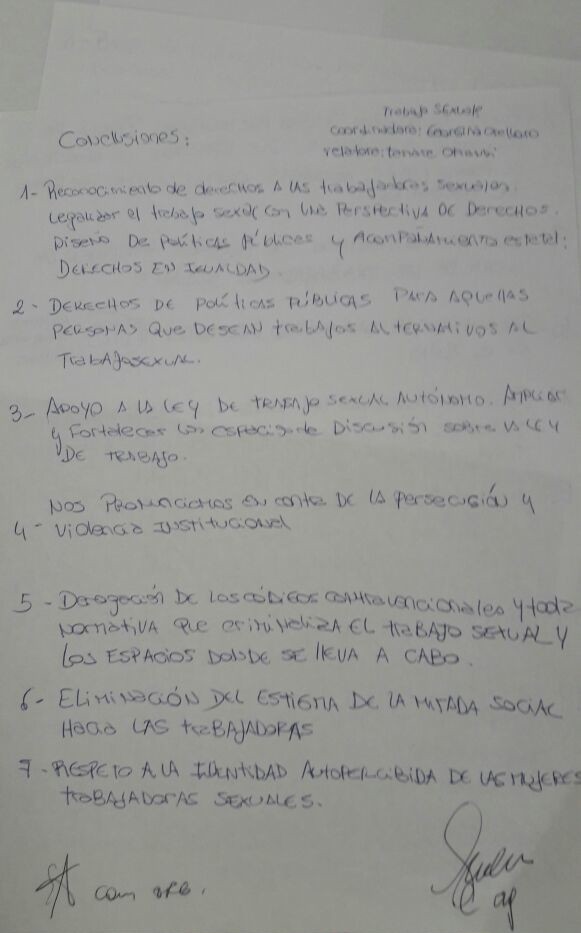 Trabajo SExual
coordinadora: Georgina Orellano
relatora:
Conclusiones:
1- Reconocimiento de derechos A las trabajadoras sexuales.
Legalizar el trabajo sexual con una Perspectiva DE Derechos.
Diseño De Políticas Públicas y Acompañamiento estatal:
DERECHOS EN IGUALDAD.
2- DERECHOS DE políticas PÚBLICAS PARA AQUELLAS
PERSONAS QUE DESEAN trabajos ALTERNATIVOS AL
TrabAJosexual.
3- APOYO A LA LEY DE TRABAJO SEXUAL AUTÓNOMO. Ampliar
y Fortalecer los espacios de Discusión sobre la LEY
DE TRABAJO.
Nos Pronunciamos en contra DE LA persecusión y
4- Violencia INSTitucional
5- Derogación DE Los códigos contravencionales y toda
Normativa que criminaliza EL trABAJO SEXUAL y
los ESPACIOS DONDE SE lleva A CABO.
6- ELIMINACIÓN DEL ESTIGMA DE LA MIRADA SOCIAL
Hacia LAS trABAJADORAS
7- RESPETO A LA IDENTIDAD AutoPERCIBIDA DE LAS MUJERES
trABAJADORAS SEXUALES.